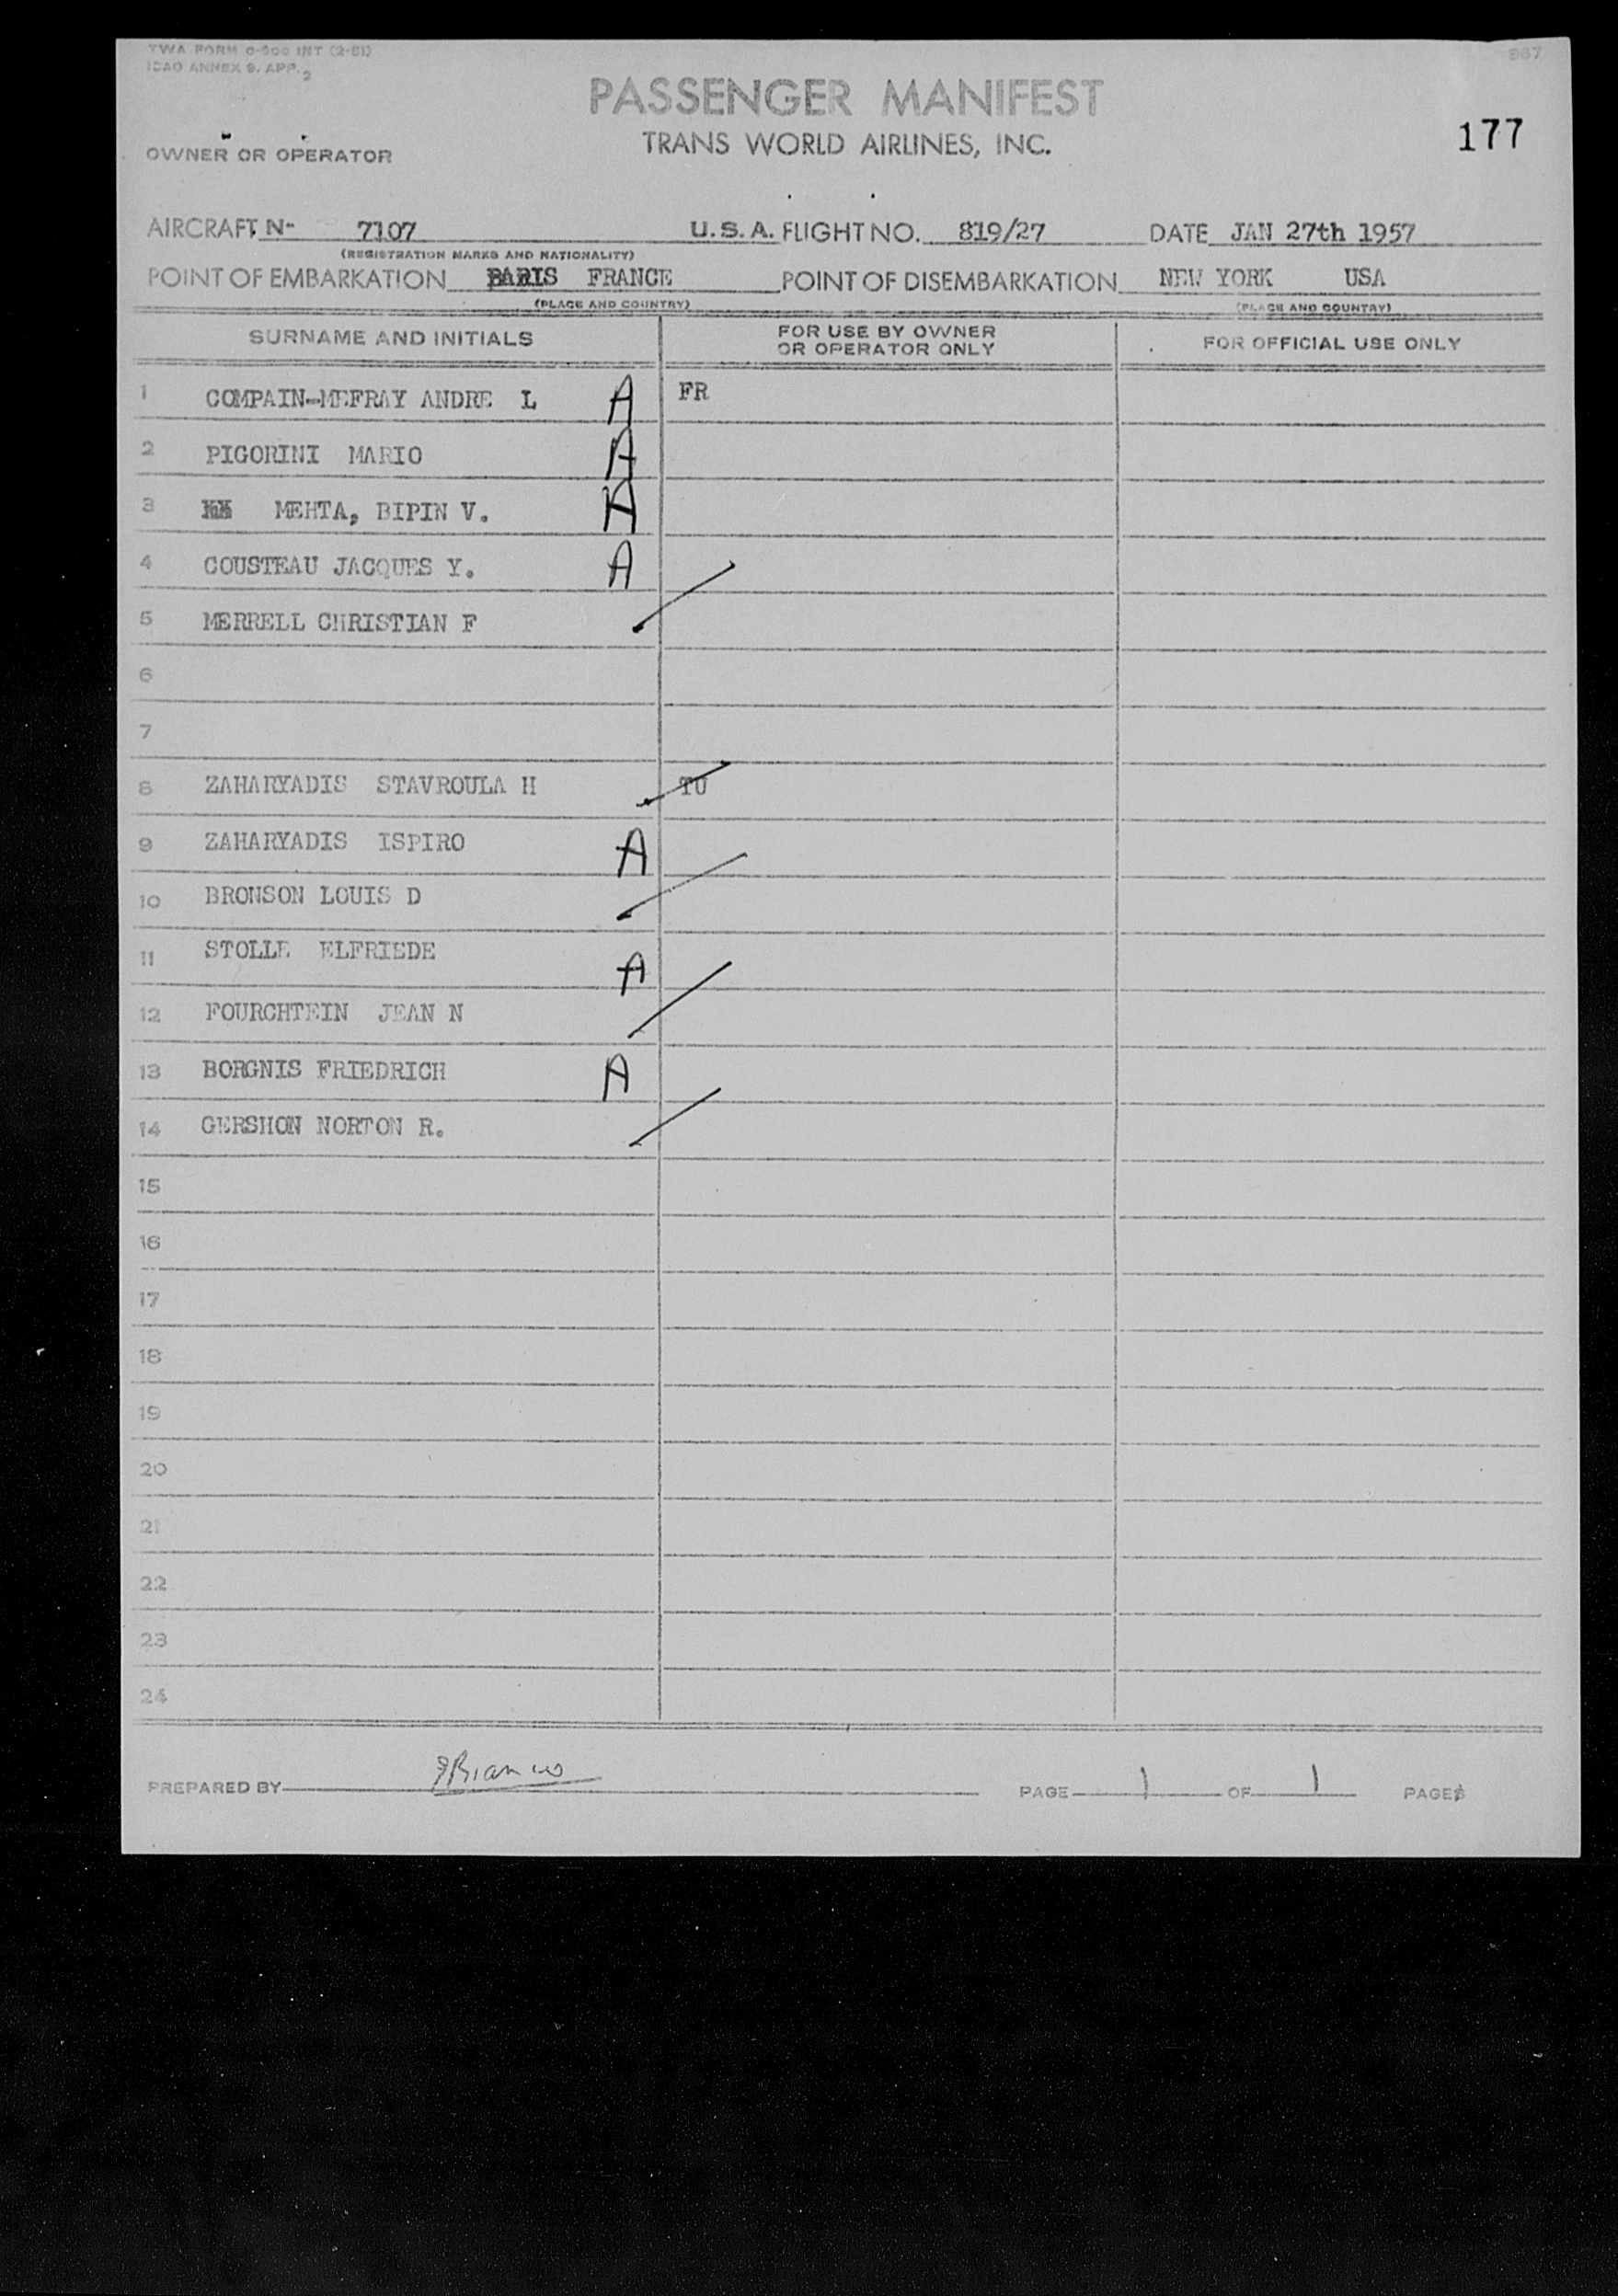 TWA FORM 0-900 INT (2-51)
ICAO ANNEX 9. APP. 2
967
PASSENGER MANIFEST
TRANS WORLD AIRLINES, INC.
177
OWNER OR OPERATOR
AIRCRAFT N- 7107 U.S.A. FLIGHT NO. 819/27 DATE JAN 27th 1957
(REGISTRATION MARKS AND NATIONALITY)
POINT OF EMBARKATION PARIS FRANCE POINT OF DISEMBARKATION NEW YORK USA
(PLACE AND COUNTRY) (PLACE AND COUNTRY)
SURNAME AND INITIALS FOR USE BY OWNER OR OPERATOR ONLY FOR OFFICIAL USE ONLY
1 COMPAIN-MEFRAY ANDRE L A FR
2 PIGORINI MARIO A
3 MEHTA, BIPIN V. A
4 COUSTEAU JACQUES Y. A
5 MERRELL CHRISTIAN F
6
7
8 ZAHARYADIS STAVROULA H TU
9 ZAHARYADIS ISPIRO A
10 BRONSON LOUIS D
11 STOLLE ELFRIEDE A
12 FOURCHTEIN JEAN N
13 BORGNIS FRIEDRICH A
14 GERSHON NORTON R.
15
16
17
18
19
20
21
22
23
24
PREPARED BY PAGE 1 OF 1 PAGES